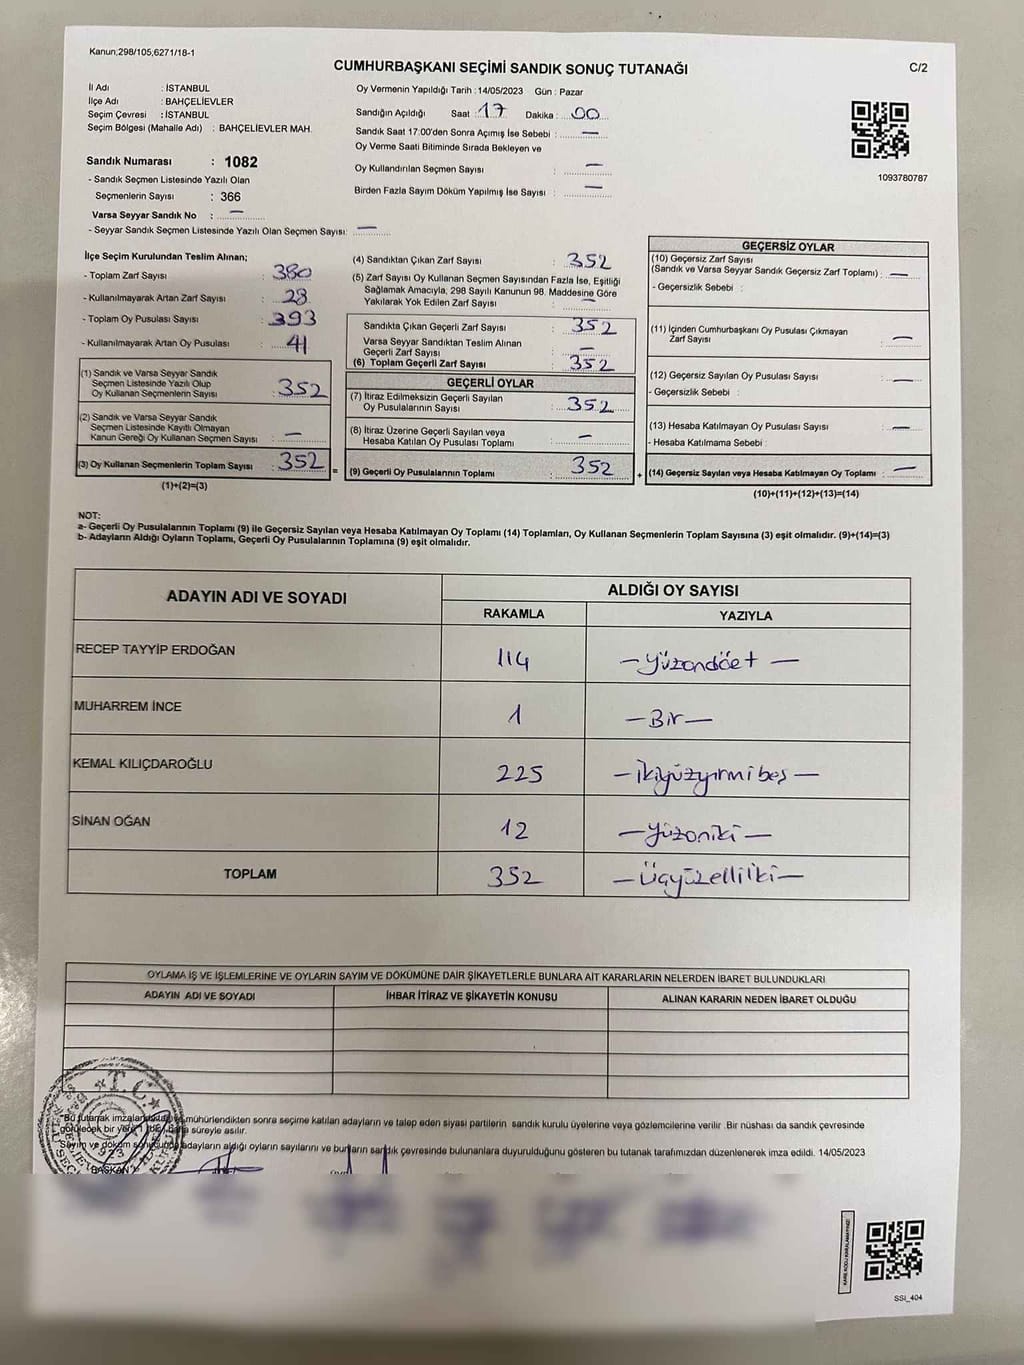 Kanun;298/105;6271/18-1
CUMHURBAŞKANI SEÇİMİ SANDIK SONUÇ TUTANAĞI
C/2
İl Adı : İSTANBUL
İlçe Adı : BAHÇELİEVLER
Seçim Çevresi : İSTANBUL
Seçim Bölgesi (Mahalle Adı) : BAHÇELİEVLER MAH.
Sandık Numarası : 1082
- Sandık Seçmen Listesinde Yazılı Olan
Seçmenlerin Sayısı : 366
Varsa Seyyar Sandık No : —
- Seyyar Sandık Seçmen Listesinde Yazılı Olan Seçmen Sayısı: —
Oy Vermenin Yapıldığı Tarih : 14/05/2023 Gün : Pazar
Sandığın Açıldığı Saat : 17 Dakika : 00
Sandık Saat 17:00'den Sonra Açımış İse Sebebi : —
Oy Verme Saati Bitiminde Sırada Bekleyen ve
Oy Kullandırılan Seçmen Sayısı : —
Birden Fazla Sayım Döküm Yapılmış İse Sayısı : —
1093780787
İlçe Seçim Kurulundan Teslim Alınan;
- Toplam Zarf Sayısı : 380
- Kullanılmayarak Artan Zarf Sayısı : 28
- Toplam Oy Pusulası Sayısı : 393
- Kullanılmayarak Artan Oy Pusulası : 41
(1) Sandık ve Varsa Seyyar Sandık
Seçmen Listesinde Yazılı Olup
Oy Kullanan Seçmenlerin Sayısı : 352
(2) Sandık ve Varsa Seyyar Sandık
Seçmen Listesinde Kayıtlı Olmayan
Kanun Gereği Oy Kullanan Seçmen Sayısı : —
(3) Oy Kullanan Seçmenlerin Toplam Sayısı : 352
(1)+(2)=(3)
(4) Sandıktan Çıkan Zarf Sayısı : 352
(5) Zarf Sayısı Oy Kullanan Seçmen Sayısından Fazla İse, Eşitliği
Sağlamak Amacıyla, 298 Sayılı Kanunun 98. Maddesine Göre
Yakılarak Yok Edilen Zarf Sayısı : —
Sandıkta Çıkan Geçerli Zarf Sayısı : 352
Varsa Seyyar Sandıktan Teslim Alınan
Geçerli Zarf Sayısı : —
(6) Toplam Geçerli Zarf Sayısı : 352
GEÇERLİ OYLAR
(7) İtiraz Edilmeksizin Geçerli Sayılan
Oy Pusulalarının Sayısı : 352
(8) İtiraz Üzerine Geçerli Sayılan veya
Hesaba Katılan Oy Pusulası Toplamı : —
= (9) Geçerli Oy Pusulalarının Toplamı : 352 +
GEÇERSİZ OYLAR
(10) Geçersiz Zarf Sayısı
(Sandık ve Varsa Seyyar Sandık Geçersiz Zarf Toplamı) : —
- Geçersizlik Sebebi :
(11) İçinden Cumhurbaşkanı Oy Pusulası Çıkmayan
Zarf Sayısı : —
(12) Geçersiz Sayılan Oy Pusulası Sayısı : —
- Geçersizlik Sebebi :
(13) Hesaba Katılmayan Oy Pusulası Sayısı : —
- Hesaba Katılmama Sebebi :
(14) Geçersiz Sayılan veya Hesaba Katılmayan Oy Toplamı : —
(10)+(11)+(12)+(13)=(14)
NOT:
a- Geçerli Oy Pusulalarının Toplamı (9) ile Geçersiz Sayılan veya Hesaba Katılmayan Oy Toplamı (14) Toplamları, Oy Kullanan Seçmenlerin Toplam Sayısına (3) eşit olmalıdır. (9)+(14)=(3)
b- Adayların Aldığı Oyların Toplamı, Geçerli Oy Pusulalarının Toplamına (9) eşit olmalıdır.
ADAYIN ADI VE SOYADI
ALDIĞI OY SAYISI
RAKAMLA YAZIYLA
RECEP TAYYİP ERDOĞAN 114 —yüzondört—
MUHARREM İNCE 1 —Bir—
KEMAL KILIÇDAROĞLU 225 —ikiyüzyirmibeş—
SİNAN OĞAN 12 —yüzoniki—
TOPLAM 352 —Üçyüzelliiki—
OYLAMA İŞ VE İŞLEMLERİNE VE OYLARIN SAYIM VE DÖKÜMÜNE DAİR ŞİKAYETLERLE BUNLARA AİT KARARLARIN NELERDEN İBARET BULUNDUKLARI
ADAYIN ADI VE SOYADI İHBAR İTİRAZ VE ŞİKAYETİN KONUSU ALINAN KARARIN NEDEN İBARET OLDUĞU
Bu tutanak mühürlendikten sonra seçime katılan adayların ve talep eden siyasi partilerin sandık kurulu üyelerine veya gözlemcilerine verilir .Bir nüshası da sandık çevresinde
görülecek bir yere süreyle asılır.
Sayım ve döküm adayların aldığı oyların sayılarını ve bunların sandık çevresinde bulunanlara duyurulduğunu gösteren bu tutanak tarafımızdan düzenlenerek imza edildi. 14/05/2023
T.C.
BAŞKAN
SSI_404